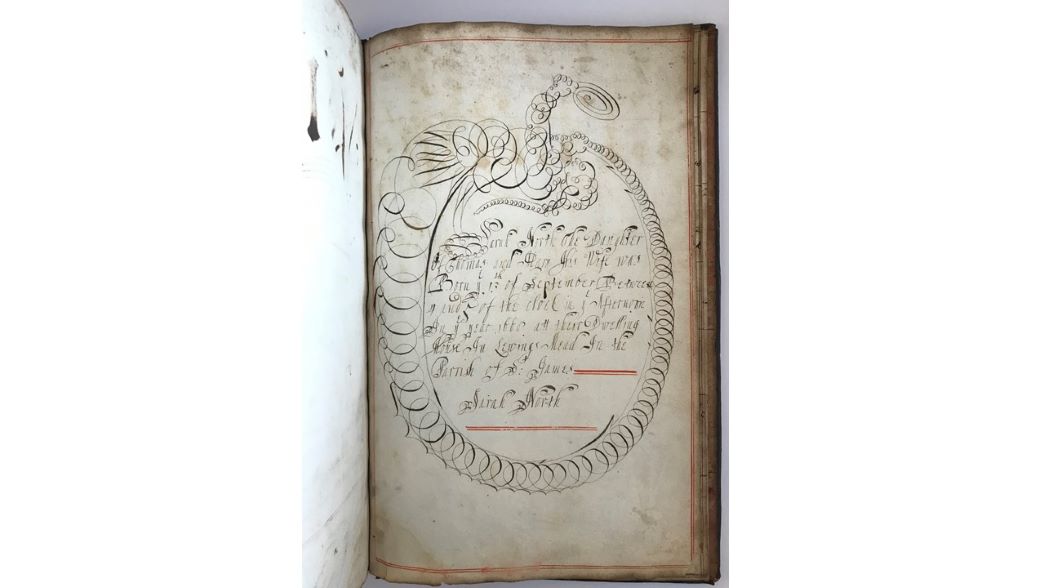 Sarah North the Daughter
Of Thomas and Mary His Wife was
Born yᵉ 13ᵗʰ of September Between
4 and 5 of the clock in yᵉ Afternoon
In yᵉ year att their Dwelling
House In Lewins Mead In the
Parrish of Sᵗ: James
Sarah North